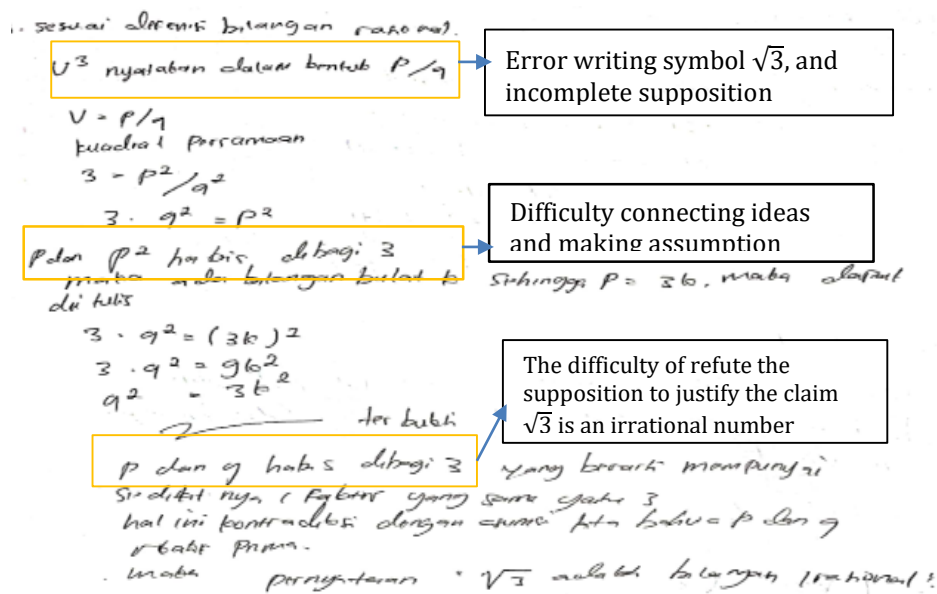 . sesuai definisi bilangan rasional.
V3 nyatakan dalam bentuk P/q
Error writing symbol √3, and
incomplete supposition
V = P/q
kuadrat persamaan
3 = p²/q²
3 · q² = p²
Difficulty connecting ideas
and making assumption
P dan p² habis dibagi 3
maka ada bilangan bulat k sehingga P = 3k. maka dapat
di tulis
3 · q² = (3k)²
3 · q² = 9k²
q² = 3k²
The difficulty of refute the
supposition to justify the claim
√3 is an irrational number
terbukti
p dan q habis dibagi 3 yang berarti mempunyai
sedikit nya 1 faktor yang sama yaitu 3
hal ini kontradiksi dengan asumsi kita bahwa p dan q
relatif prima.
. maka pernyataan " √3 adalah bilangan irrational"